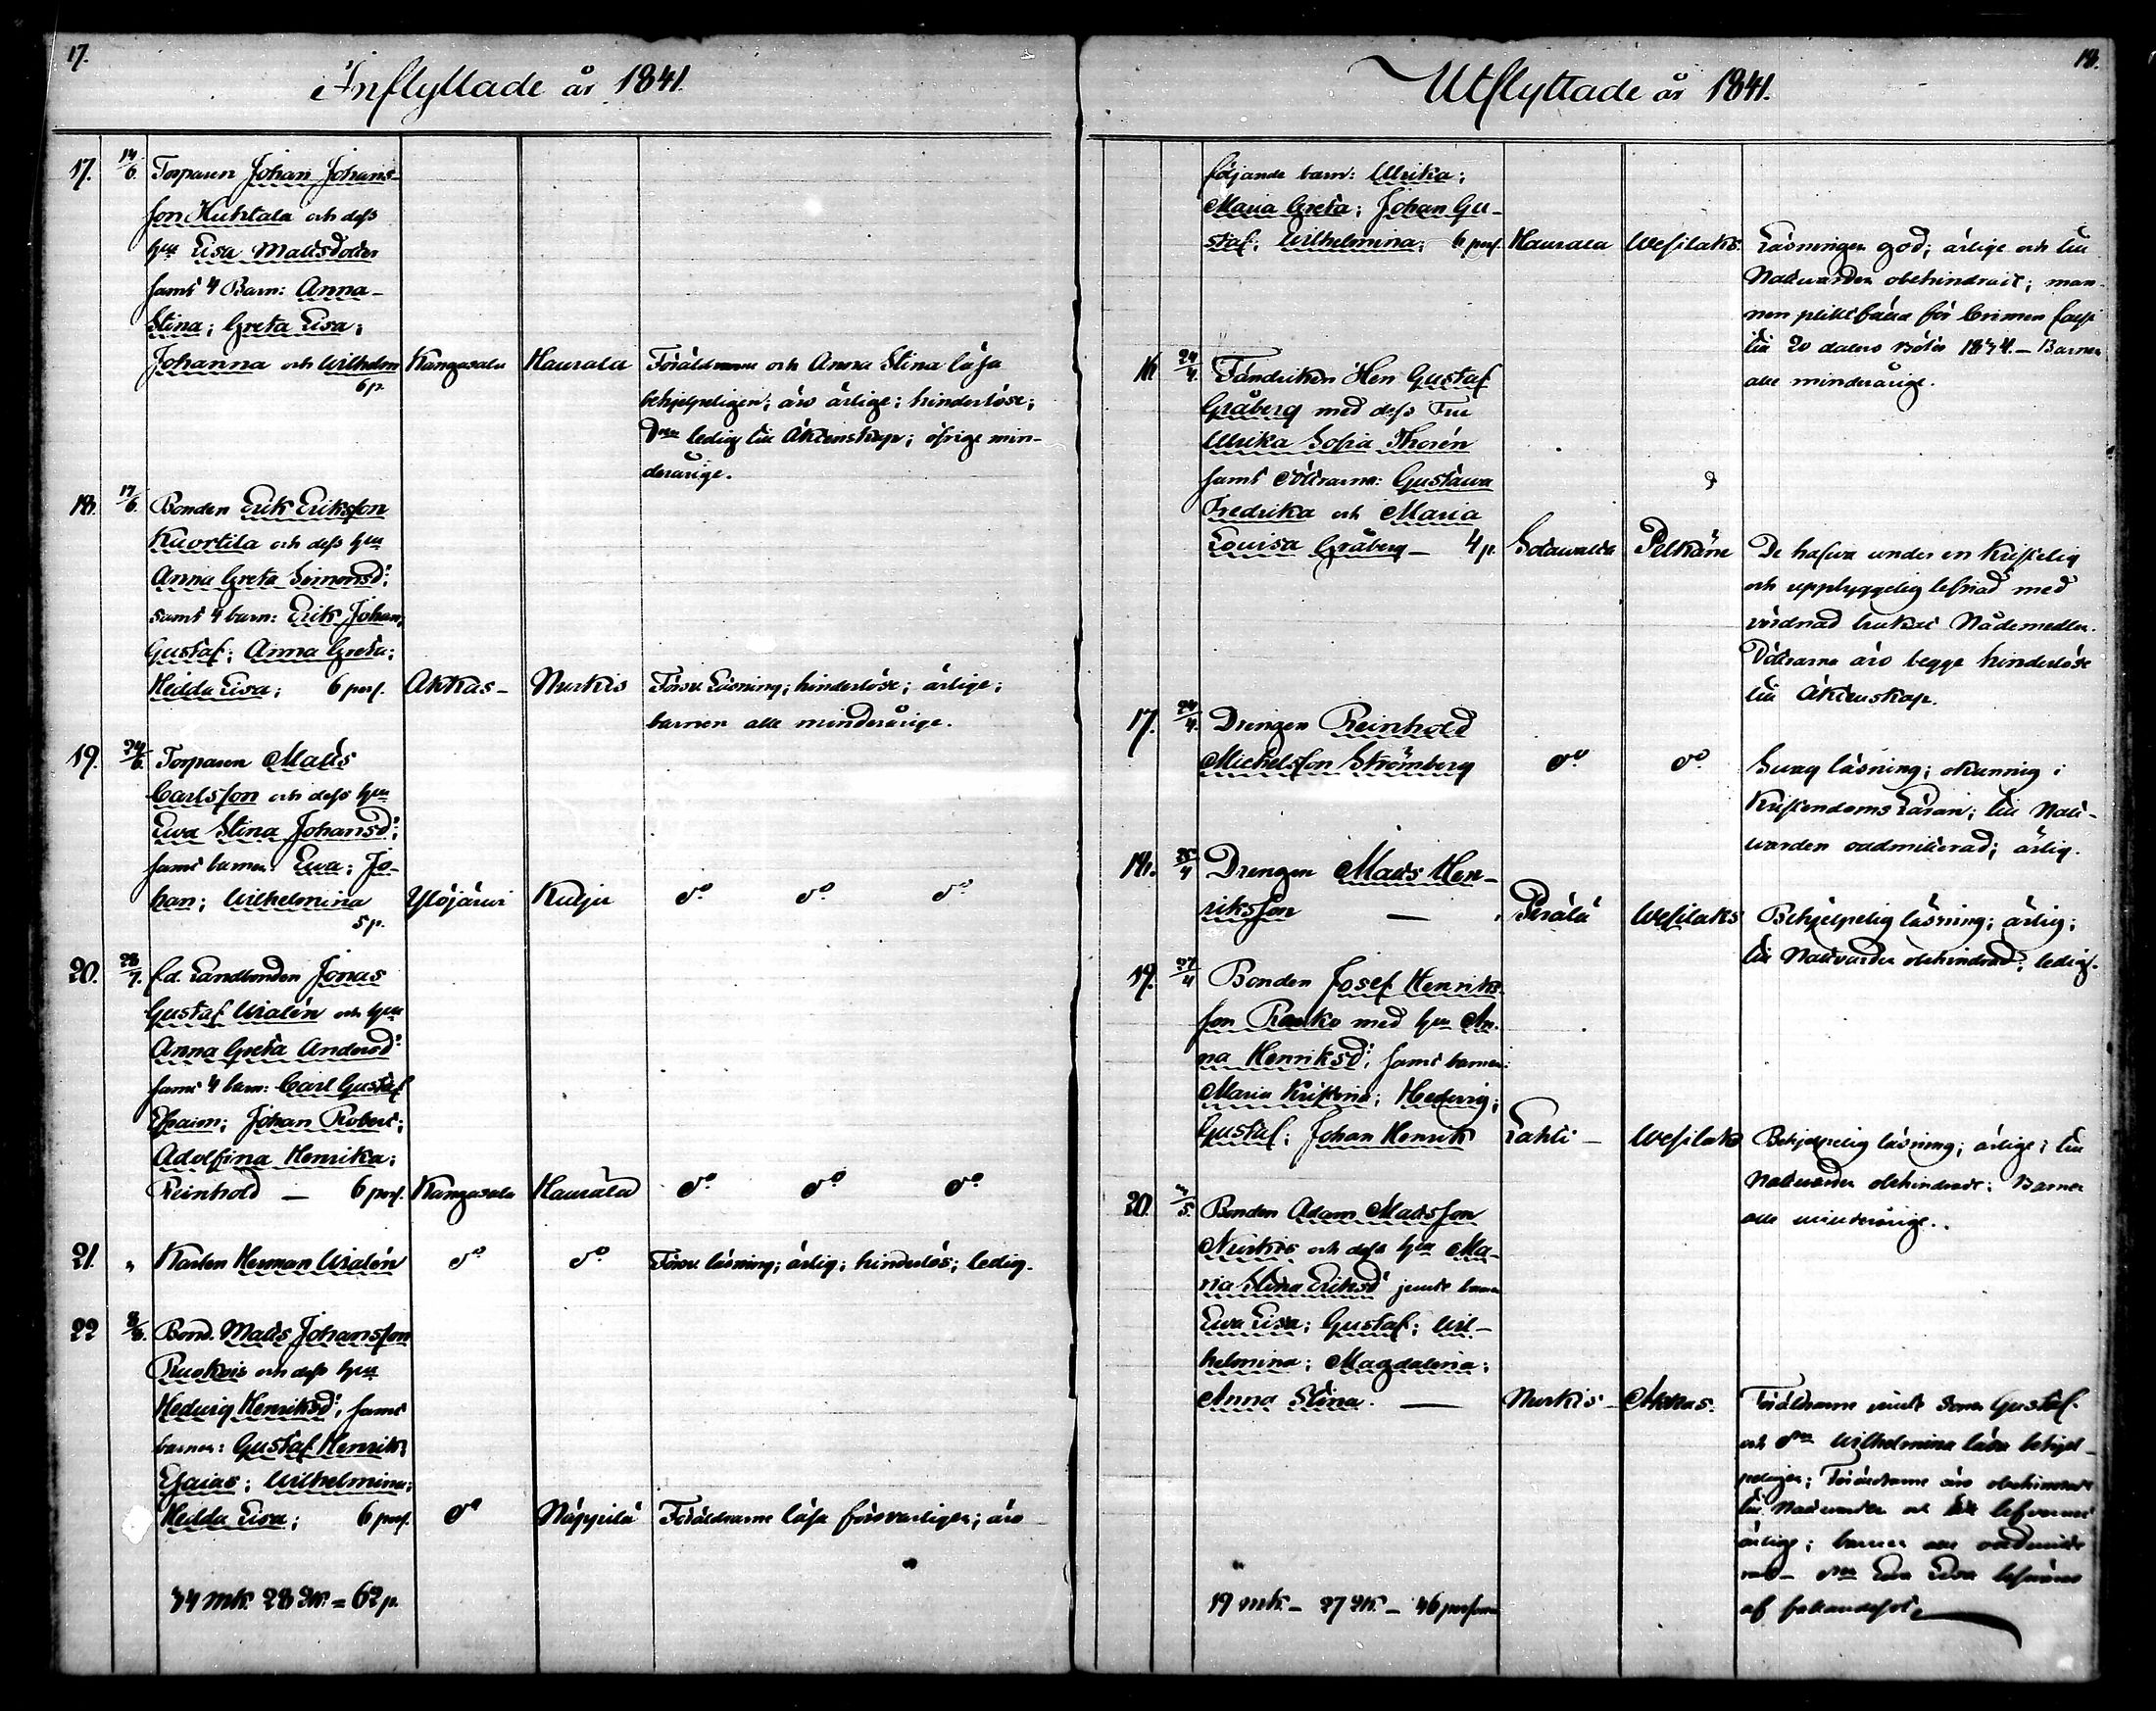 17.
Inflyttade år 1841.
17. 14/6. Torparen Johan Johans-
son Huhtala och dess
hu Lisa Mattsdotter
samt 4 Barn: Anna-
Stina; Greta Lisa;
Johanna och Wilhelm Kangasala Haurala Föräldrarne och Anna Stina läsa
6 p. behjelpeligen; äro ärlige; hinderlöse;
dren ledig till Äktenskap; öfrige min-
derårige.
18. 17/6. Bonden Erik Eriksson
Kuortila och dess hu
Anna Greta Simonsd:
samt 4 barn: Erik Johan;
Gustaf; Anna Greta;
Hedda Lisa; 6 pers. Akkas- Nurkis Försv. Läsning; hinderlöse; ärlige;
barnen alla minderårige.
19. 24/6. Torparen Matts
Carlsson och dess hu
Ewa Stina Johansd:
samt barnen Ewa; Jo-
han; Wilhelmina Ylöjärvi Kulju do do do
5 p.
20. 28/7. f.d. Landbonden Jonas
Gustaf Uralén och hu
Anna Greta Andersd:
samt 4 barn: Carl Gustaf
Efraim; Johan Robert;
Adolfina Henrika;
Reinhold — 6 pers. Kangasala Haurala do do do
21. „ Karlen Herman Uralén do do Försv. läsning; ärlig; hinderlös; ledig.
22 Bond. Matts Johansson
Ruokois och dess hu
Hedvig Henriksd:, samt
barnen: Gustaf Henrik;
Esaias; Wilhelmina;
Hedda Lisa; 6 pers. do Näppilä Föräldrarne läsa försvarligen; äro
34 mk. 28 qk. = 62 p.
18.
Utflyttade år 1841.
följande barn: Ulrika;
Maria Greta; Johan Gu-
staf; Wilhelmina; 6 pers. Haurala Wesilaks Läsningen god; ärlige och till
Nattvarden obehindrade; man-
nen pliktfäld för Crimen falsi
till 20 dalers böter 1834. – Barnen
alle minderårige.
16 24/4. Fändriken Herr Gustaf
Gråberg med dess Fru
Ulrika Sofia Thorén
samt döttrarna: Gustawa
Fredrika och Maria
Lovisa Gråberg — 4 p. Sotawalta Pelkäne De hafwa under en kristelig
och uppbyggelig lefnad med
vördnad brukat Nådemedlen.
Döttrarna äro begge hinderlöse
till Äktenskap.
17. 24/4. Drengen Reinhold
Michelsson Strömberg do do Swag läsning; okunnig i
Kristendoms Läran; till Natt-
warden oadmitterad; ärlig.
18. 25/4 Drengen Matts Hen-
riksson — Perälä Wesilaks Behjelpelig läsning; ärlig;
till Nattvarden obehindrad; ledig.
19. 27/4 Bonden Josef Henriks-
son Rauko med hu An-
na Henriksd:, samt barnen:
Maria Kristina; Hedvig;
Gustaf; Johan Henrik Lahti – Wesilaks Behjelpelig läsning; ärlige; till
Nattvarden obehindrade; Barnen
alle minderårige.
20. Bonden Adam Mattsson
Nurkis och dess hu Ma-
ria Stina Eriksd: jemte barnen
Ewa Lisa; Gustaf; Wil-
helmina; Magdalena;
Anna Stina. — Nurkis – Akkas. Föräldrarne jemte sonen Gustaf
och dren Wilhelmina läsa behjel-
peligen; Föräldrarne äro obehindrade
till Nattvarden och till lefvernet
ärlige; barnen alle oadmitte-
rade – dren Ewa Lisa besväras
af fallandesot.
19 mk. – 27 qk. – 46 persone